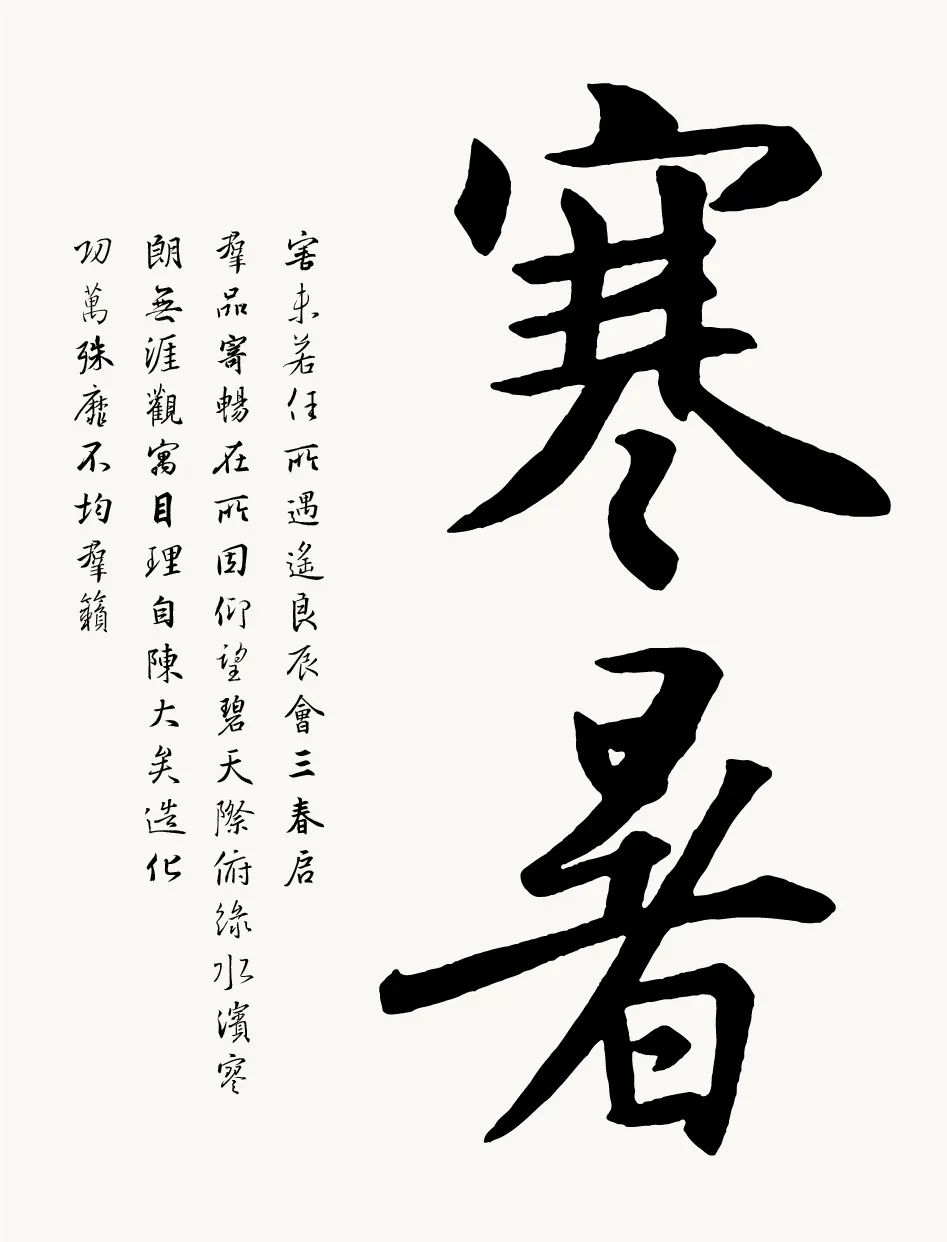 寒暑
害未若任所遇遙良辰會三春启
羣品寄暢在所因仰望碧天際俯綠水濱寥
朗無涯觀寓目理自陳大矣造化
功萬殊靡不均羣籟